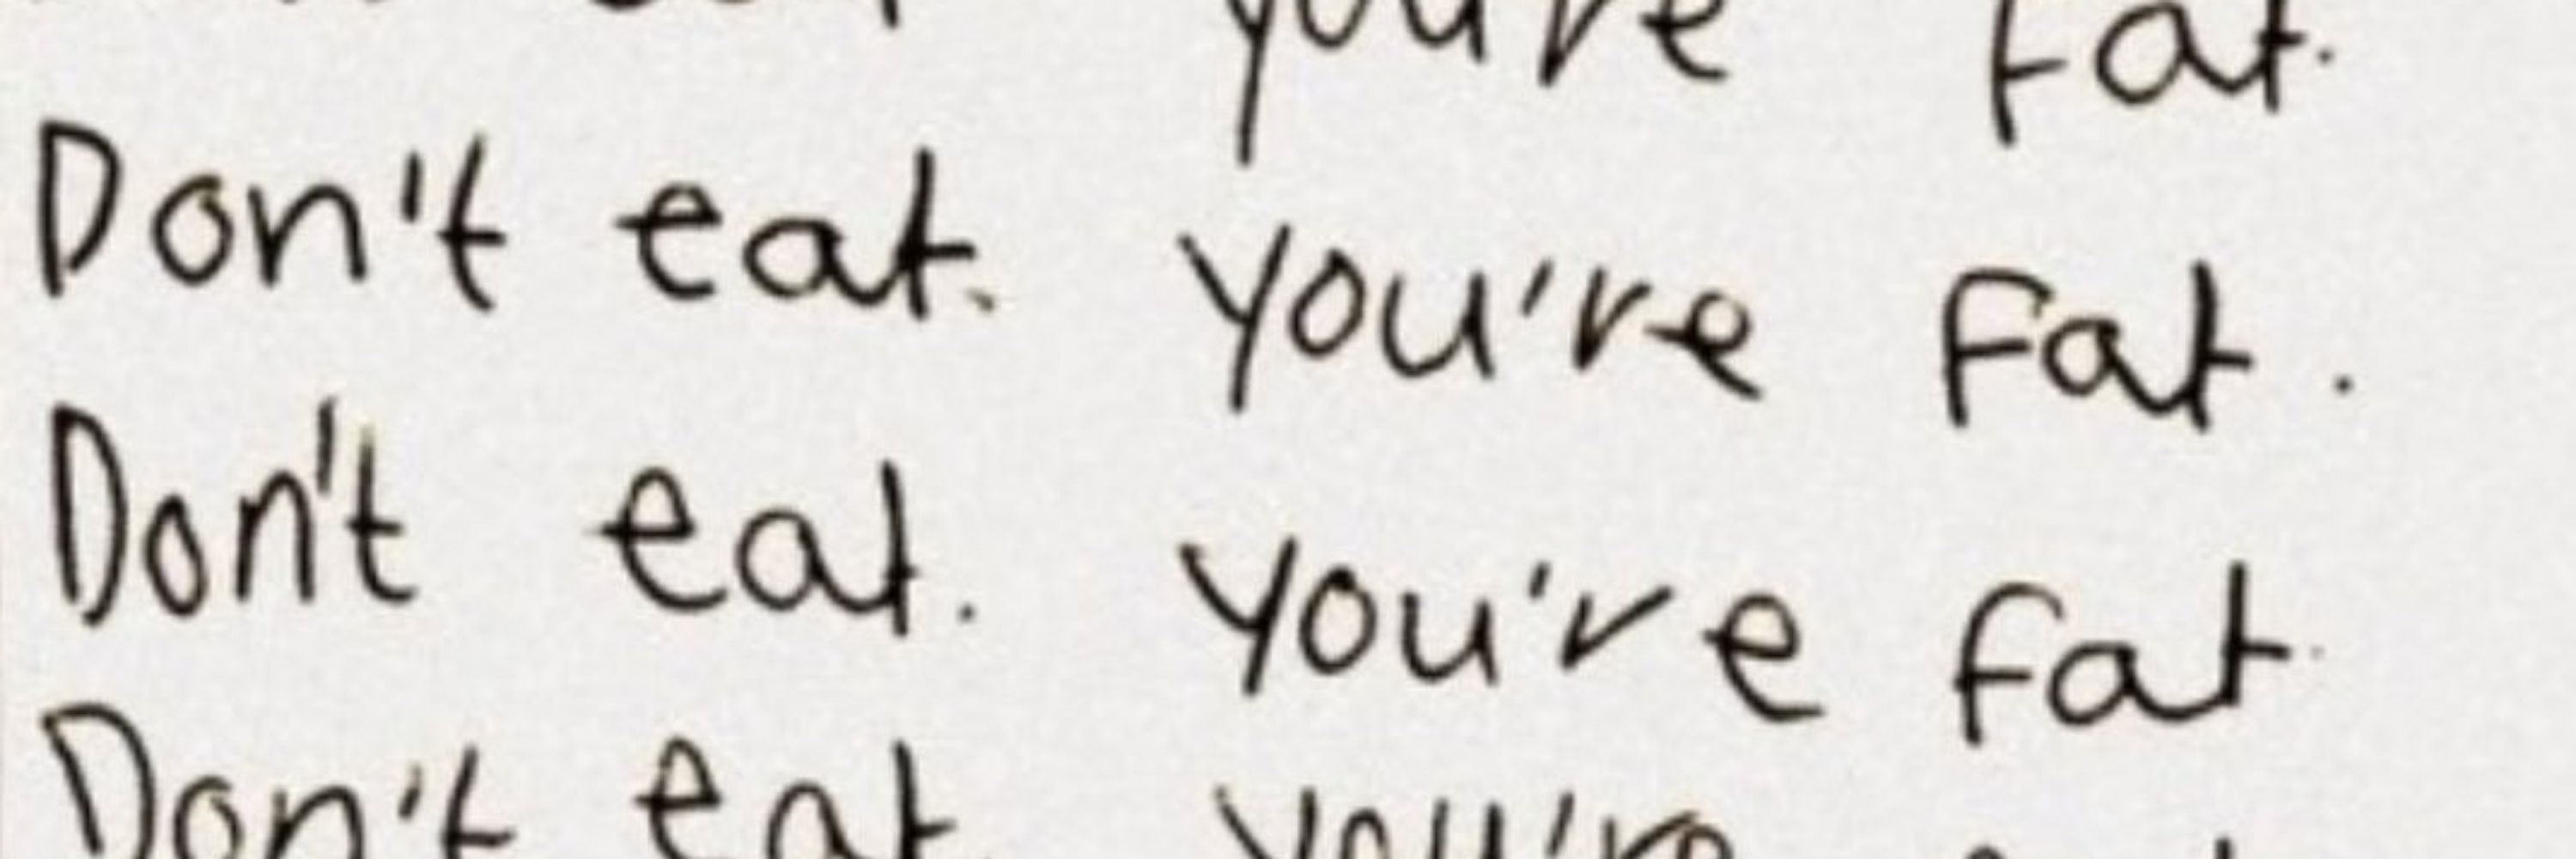 you're fat.
Don't eat. you're fat.
Don't eat. you're fat.
Don't eat. you're